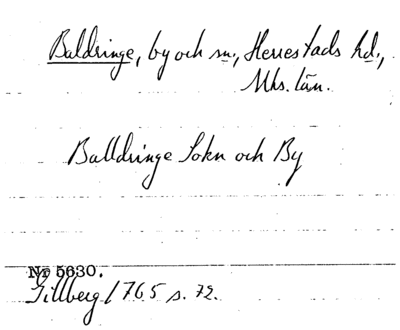 Baldringe, by och sn., Herrestads hd.,
Mhs. län.
Balldringe Sokn och By
Nr 5630.
Gillberg 1765 s. 72.